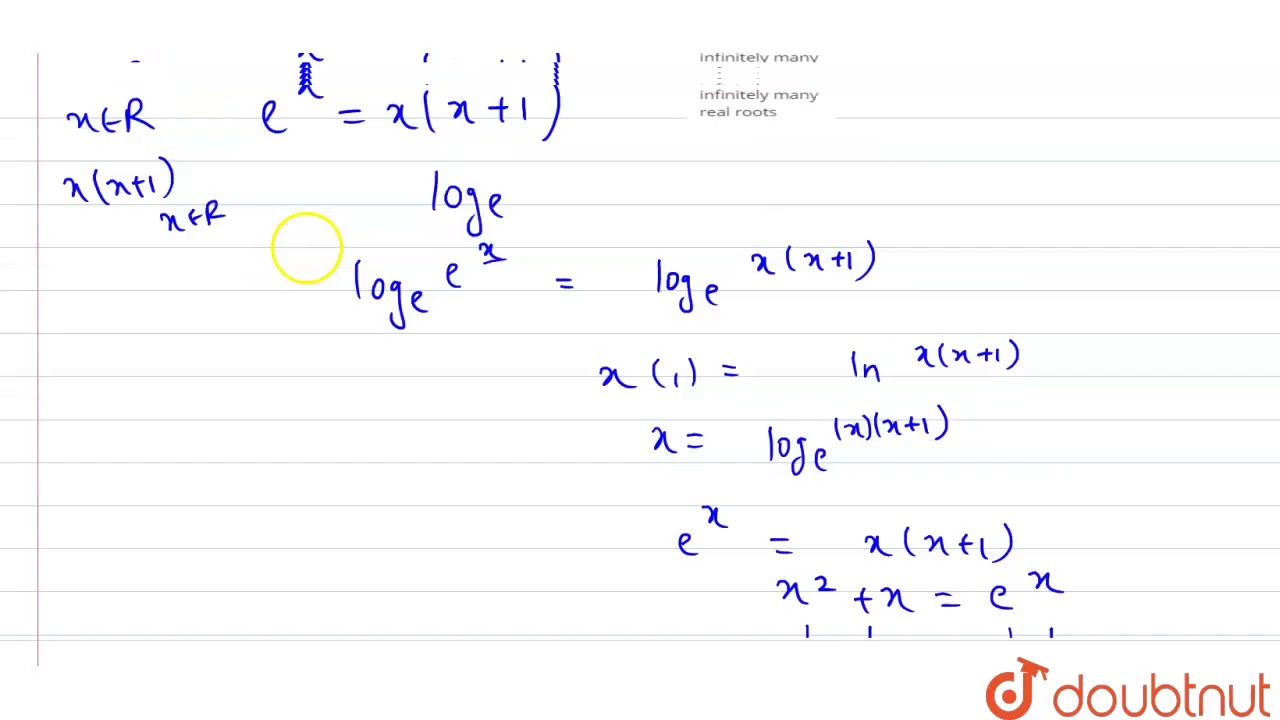 infinitely many
infinitely many
real roots
x∈R e^x = x(x+1)
x(x+1)
x∈R
log_e
log_e e^x = log_e x(x+1)
x (1) = ln x(x+1)
x = log_e (x)(x+1)
e^x = x(x+1)
x² + x = e^x
doubtnut